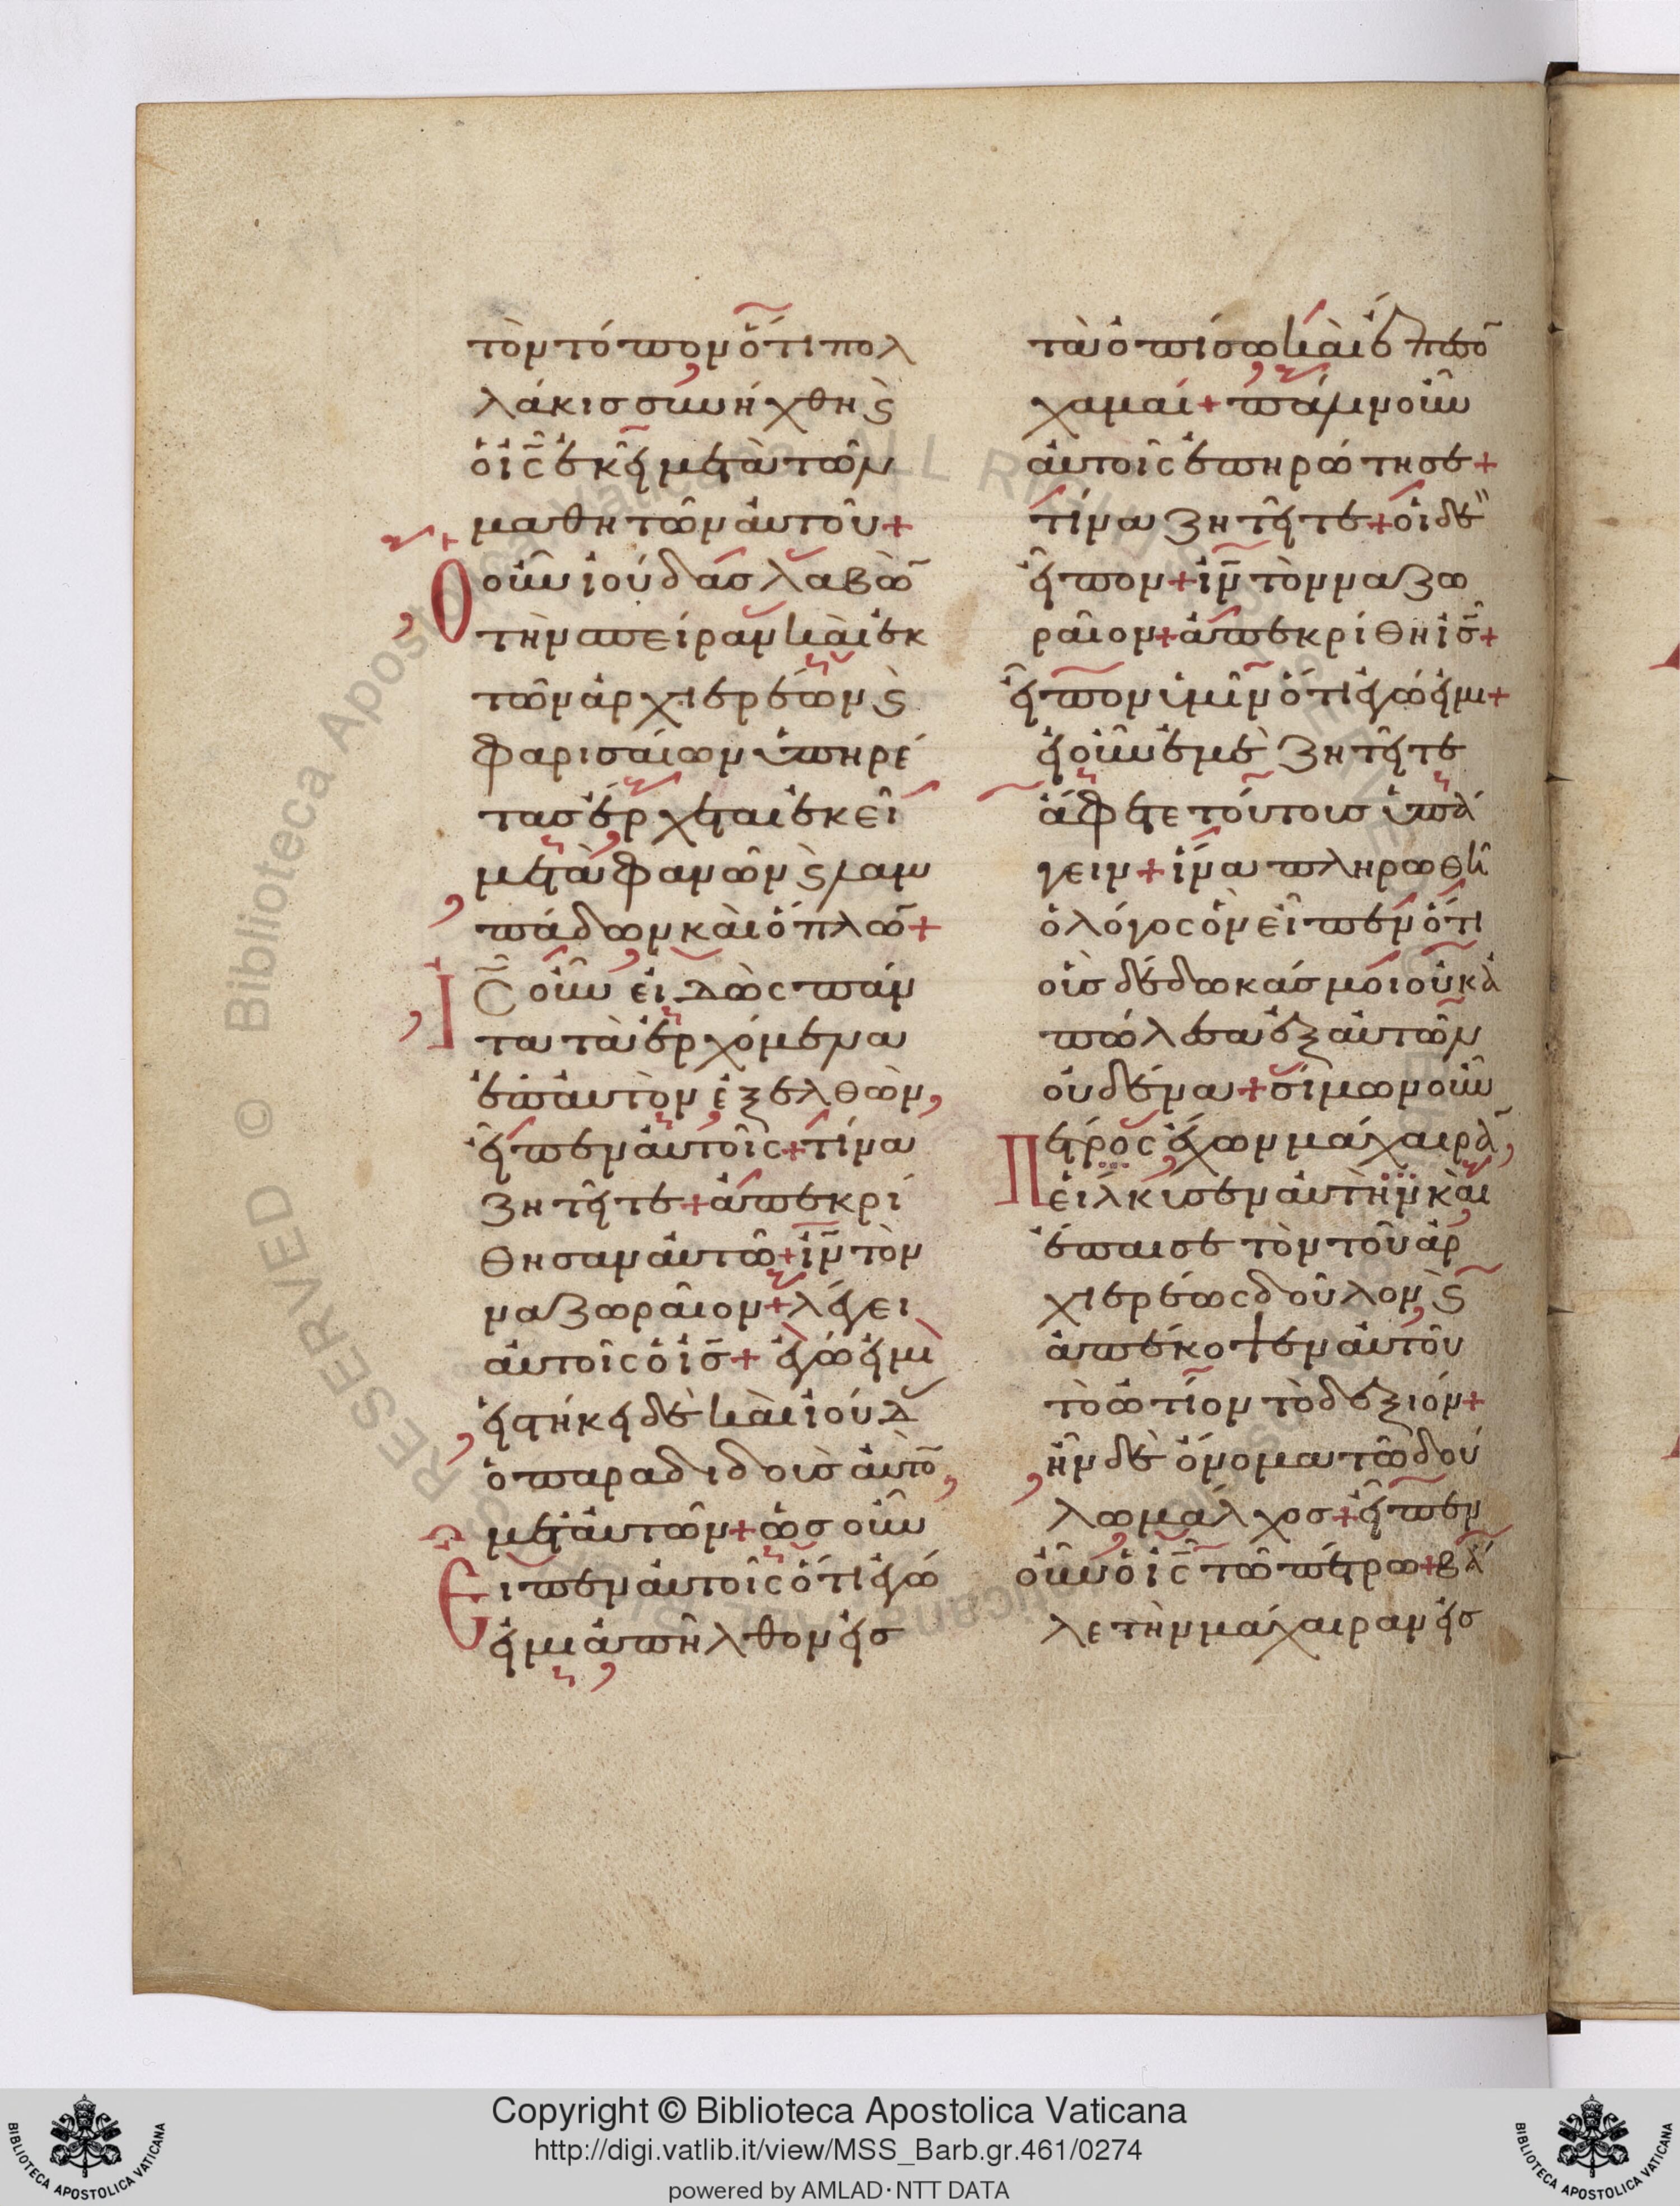 τὸν τόπον ὅτι πολ
λάκις συνήχθη ϛ
ὁ ις̅ ἐκεῖ μετὰ τῶν
μαθητῶν αὐτοῦ+
Ὁ οὖν ἰούδασ λαβὼ̅
τὴν σπείραν καὶ ἐκ
τῶν ἀρχιερέων ϛ
φαρισαίων ὑπηρέ
τασ ἔρχεται ἐκεῖ
μετὰ φανῶν ϛ λαμ
πάδων καὶ ὅπλω̅+
Ις̅ οὖν εἰδὼς πάν
τα τὰ ἐρχόμενα
ἐπ' αὐτὸν ἐξελθὼν,
εἶπεν αὐτοῖς+ τίνα
ζητεῖτε+ ἀπεκρί
θησαν αὐτῶ+ ιν̅ τὸν
ναζωραῖον+ λέγει
αὐτοῖς ὁ ισ̅+ ἐγώ εἰμι
εἱστήκει δὲ καὶ ἰούδ
ὁ παραδιδοὺσ αὐτὸ̅,
μετ' αὐτῶν+ ὡσ οὖν
Εἶπεν αὐτοῖς ὅτι ἐγώ
εἰμι ἀπῆλθον εἰσ
τὰ ὀπίσω καὶ ἔπεσο̅
χαμαί+ πάλιν οὖν
αὐτοῖς ἐπηρώτησε+
τίνα ζητεῖτε+ οἱ δὲ
εἶπον+ ιν̅ τὸν ναζω
ραῖον+ ἀπεκρίθη ισ̅+
εἶπον ὑμῖν ὅτι ἐγώ εἰμι+
εἰ οὖν ἐμὲ ζητεῖτε
ἄφετε τούτουσ ὑπά
γειν+ ἵνα πληρωθῆ
ὁ λόγος ὃν εἶπεν ὅτι
οὓσ δέδωκάσ μοι οὐκ ἀ
πώλεσα ἐξ αὐτῶν
οὐδένα+ σίμων οὖν
Πέτρος ἔχων μάχαιρα̅,
εἵλκυσεν αὐτὴν καὶ
ἔπαισε τὸν τοῦ ἀρ
χιερέως δοῦλον ϛ
ἀπέκοψεν αὐτοῦ
τὸ ὠτίον τὸ δεξιόν+
ἦν δὲ ὄνομα τῶ δού
λω μάλχοσ+ εἶπεν
οὖν ὁ ις̅ τῶ πέτρω+ βά
λε τὴν μάχαιραν εἰσ
© Biblioteca Apostolica Vaticana ALL RIGHTS RESERVED
Copyright © Biblioteca Apostolica Vaticana
http://digi.vatlib.it/view/MSS_Barb.gr.461/0274
powered by AMLAD·NTT DATA
BIBLIOTECA APOSTOLICA VATICANA
BIBLIOTECA APOSTOLICA VATICANA